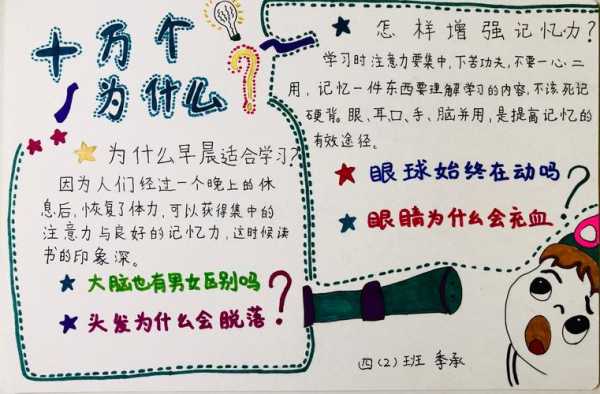 十万个
为什么?
为什么早晨适合学习?
因为人们经过一个晚上的休
息后,恢复了体力,可以获得集中的
注意力与良好的记忆力,这时候读
书的印象深。
大脑也有男女区别吗
头发为什么会脱落?
怎样增强记忆力?
学习时注意力要集中,下苦功夫,不要一心二
用,记忆一件东西要理解学习的内容,不该死记
硬背。眼、耳、口、手、脑并用,是提高记忆的
有效途径。
眼球始终在动吗
眼睛为什么会充血?
四(2)班 季承